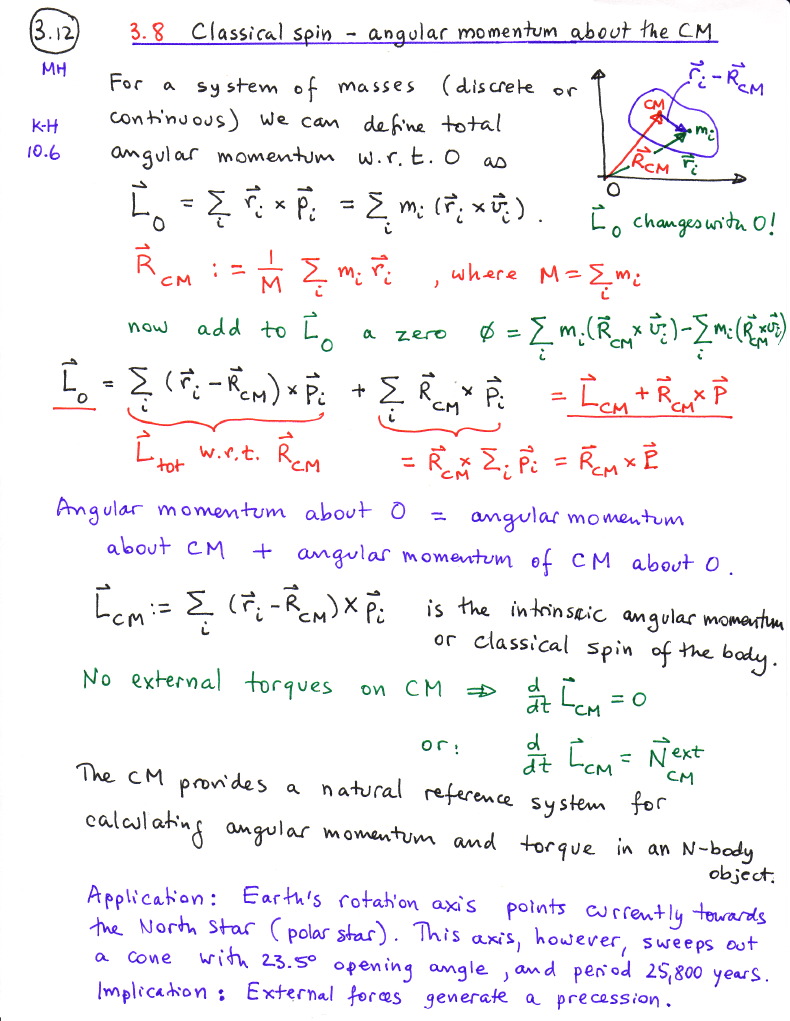 3.12
3.8 Classical spin - angular momentum about the CM
MH
K-H
10.6
For a system of masses (discrete or
continuous) we can define total
angular momentum w.r.t. O as
r⃗ᵢ - R⃗_CM
CM
mᵢ
R⃗_CM
r⃗ᵢ
O
L⃗_O = Σᵢ r⃗ᵢ × p⃗ᵢ = Σᵢ mᵢ (r⃗ᵢ × v⃗ᵢ).
L⃗_O changes with O!
R⃗_CM := 1/M Σᵢ mᵢ r⃗ᵢ , where M = Σᵢ mᵢ
now add to L⃗_O a zero ∅ = Σᵢ mᵢ(R⃗_CM × v⃗ᵢ) - Σᵢ mᵢ(R⃗_CM × v⃗ᵢ)
L⃗_O = Σᵢ (r⃗ᵢ - R⃗_CM) × p⃗ᵢ + Σᵢ R⃗_CM × p⃗ᵢ = L⃗_CM + R⃗_CM × P⃗
L⃗_tot w.r.t. R⃗_CM = R⃗_CM × Σᵢ p⃗ᵢ = R⃗_CM × P⃗
Angular momentum about O = angular momentum
about CM + angular momentum of CM about O.
L⃗_CM := Σᵢ (r⃗ᵢ - R⃗_CM) × p⃗ᵢ is the intrinsic angular momentum
or classical spin of the body.
No external torques on CM ⇒ d/dt L⃗_CM = 0
or: d/dt L⃗_CM = N⃗_CM^ext
The CM provides a natural reference system for
calculating angular momentum and torque in an N-body
object.
Application: Earth's rotation axis points currently towards
the North Star (polar star). This axis, however, sweeps out
a cone with 23.5° opening angle, and period 25,800 years.
Implication: External forces generate a precession.